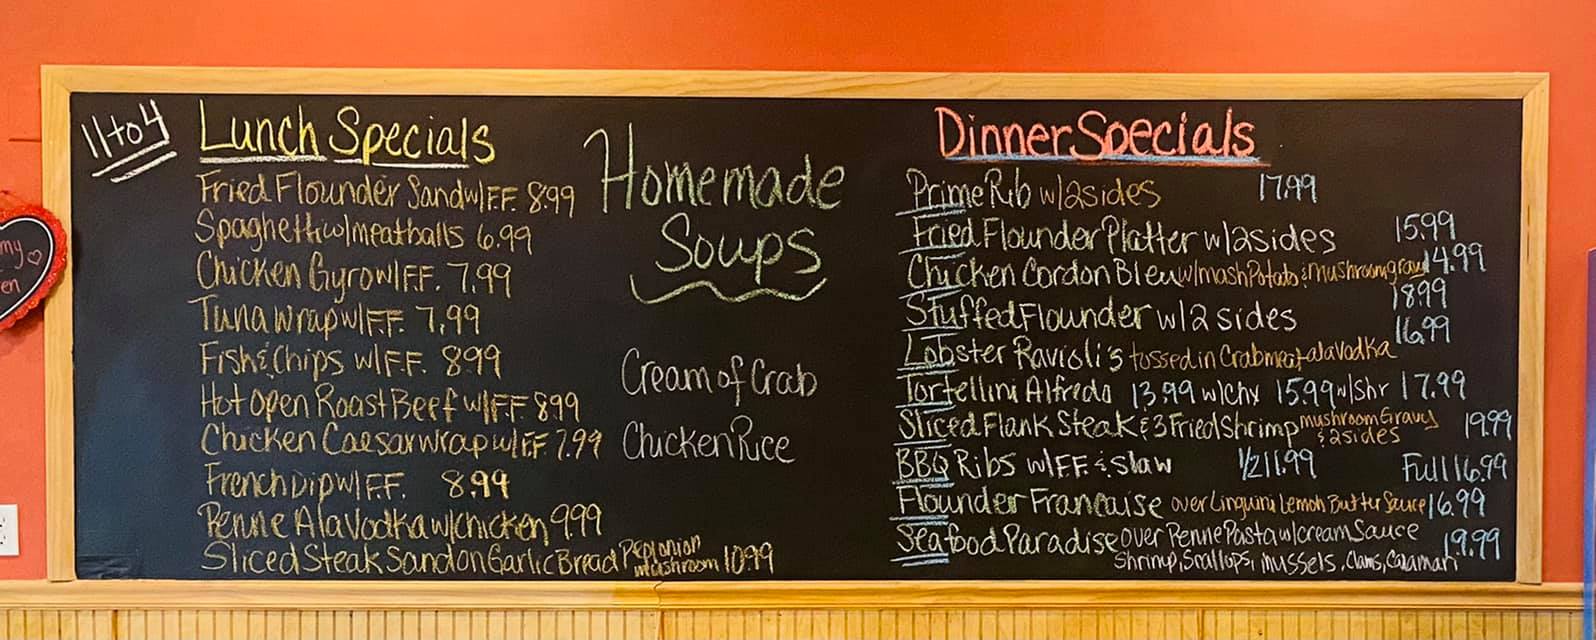 11 to 4
Lunch Specials
Fried Flounder Sand w/F.F. 8.99
Spaghetti w/meatballs 6.99
Chicken Gyro w/F.F. 7.99
Tuna wrap w/F.F. 7.99
Fish & Chips w/F.F. 8.99
Hot Open Roast Beef w/F.F 8.99
Chicken Caesar wrap w/F.F. 7.99
French Dip w/F.F. 8.99
Penne Ala Vodka w/chicken 9.99
Sliced Steak Sand on Garlic Bread Pep onion mushroom 10.99
Homemade
Soups
Cream of Crab
Chicken Rice
Dinner Specials
Prime Rib w/2 sides 17.99
Fried Flounder Platter w/2 sides 15.99
Chicken Cordon Bleu w/mash Potato & mushroom gravy 14.99
Stuffed Flounder w/2 sides 18.99
Lobster Ravioli's tossed in Crabmeat ala Vodka 16.99
Tortellini Alfredo 13.99 w/Chx 15.99 w/shr 17.99
Sliced Flank Steak & 3 Fried Shrimp mushroom Gravy & 2 sides 19.99
BBQ Ribs w/F.F. & slaw 1/2 11.99 Full 16.99
Flounder Francaise over Linguini Lemon Butter Sauce 16.99
Seafood Paradise over Penne Pasta w/cream Sauce 19.99
Shrimp, Scallops, mussels, Clams, Calamari
my
en